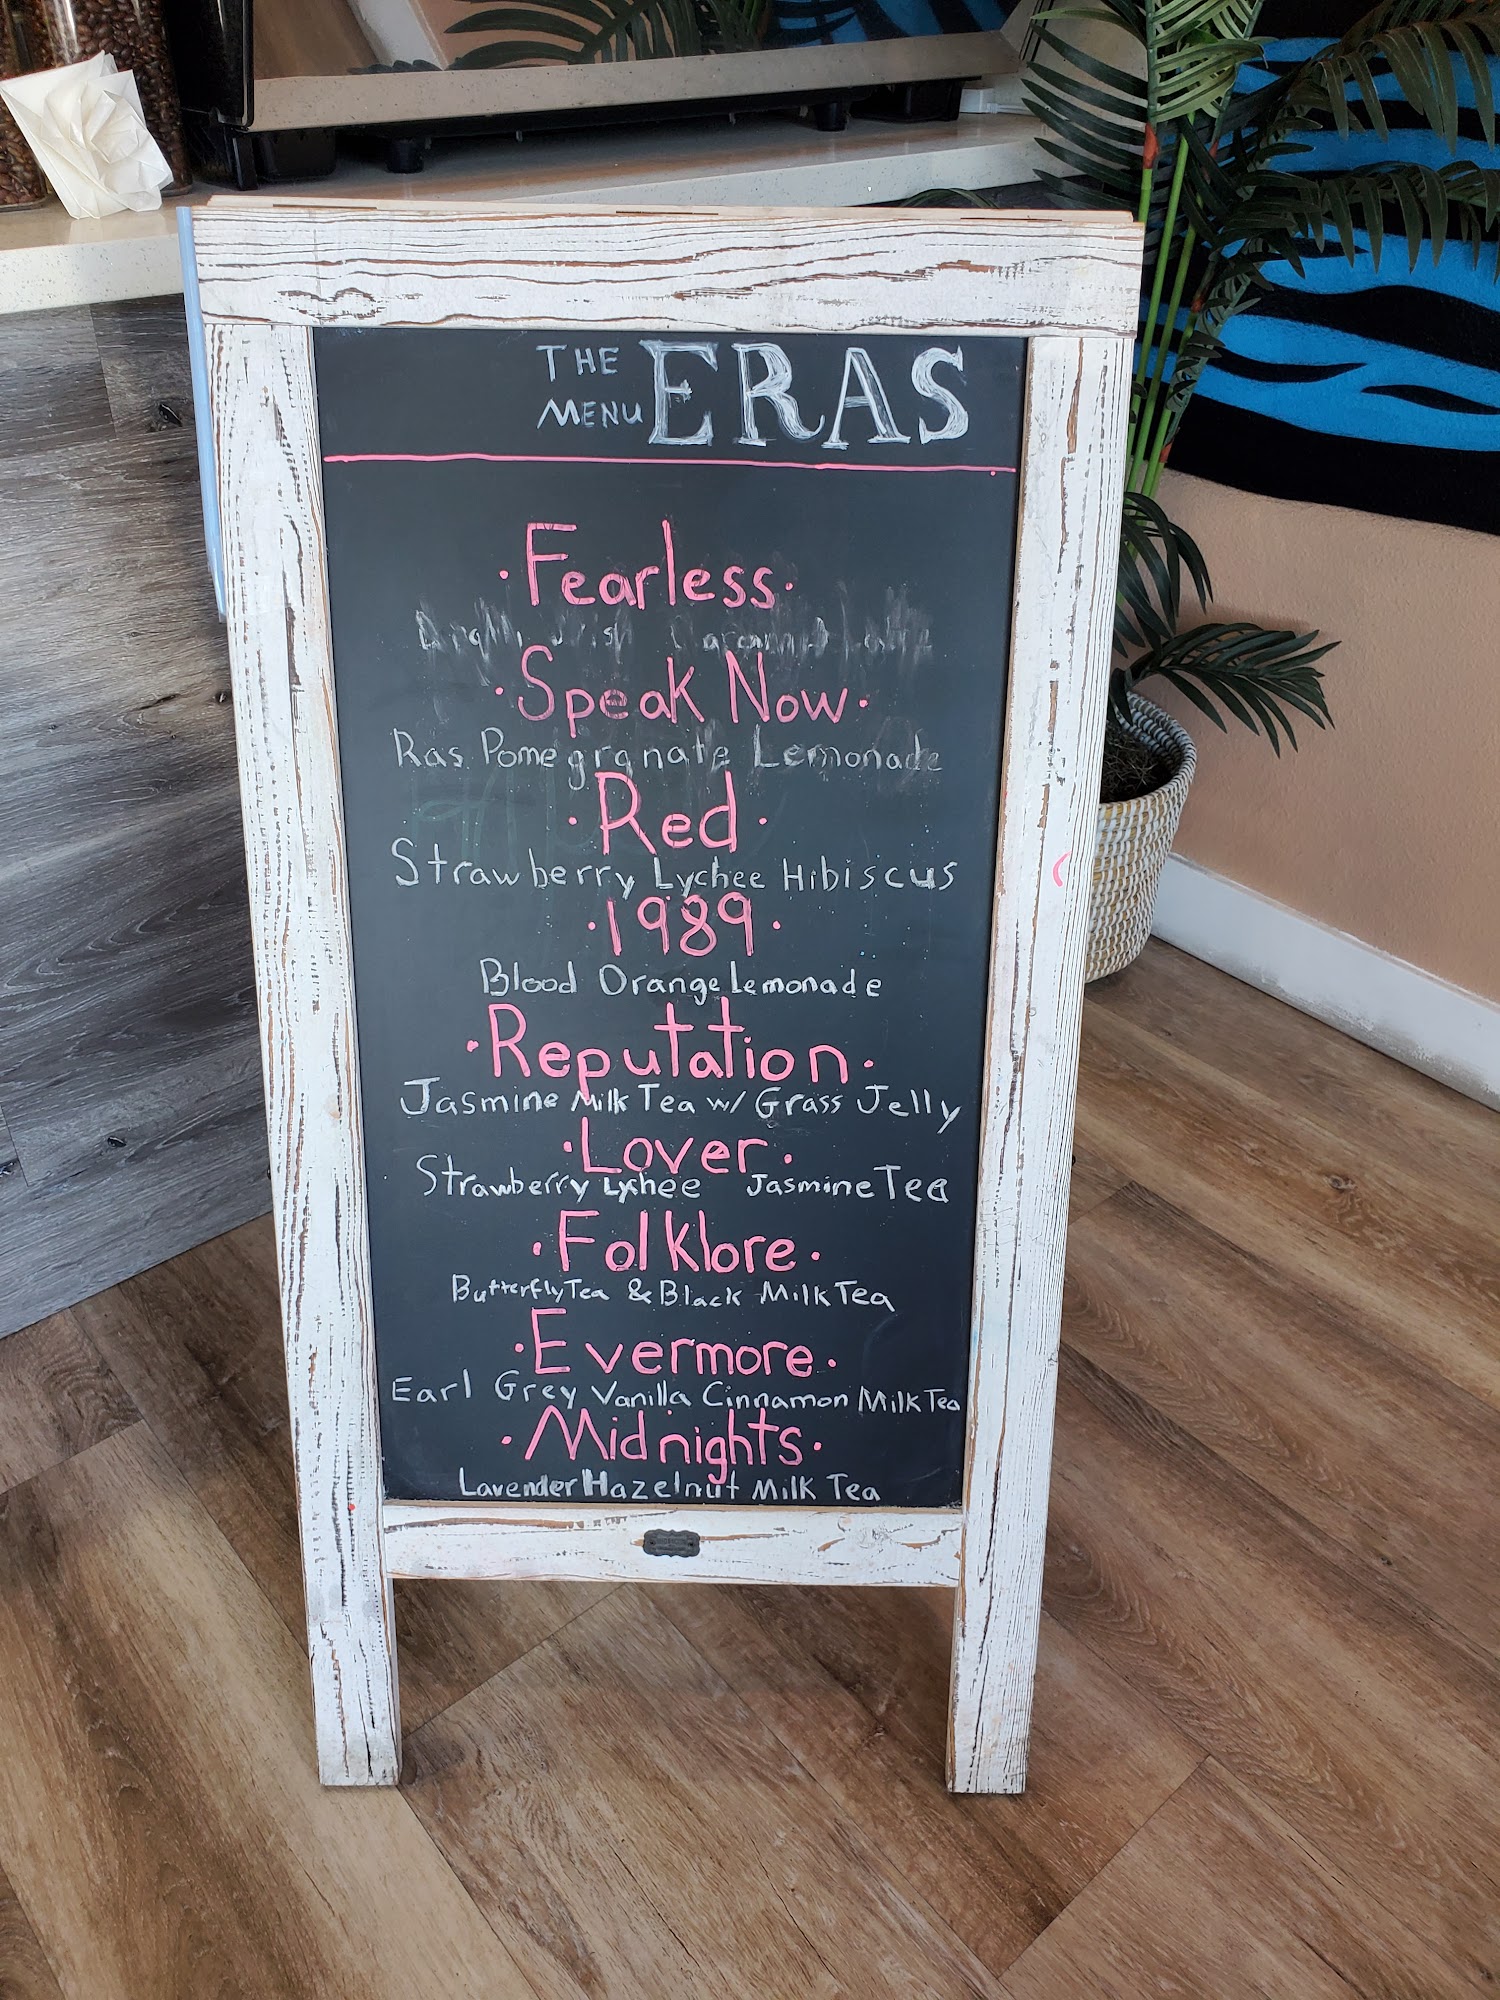 THE ERAS
MENU
· Fearless ·
· Speak Now ·
Ras Pomegranate Lemonade
· Red ·
Strawberry Lychee Hibiscus
· 1989 ·
Blood Orange Lemonade
· Reputation ·
Jasmine Milk Tea w/ Grass Jelly
· Lover ·
Strawberry Lychee Jasmine Tea
· Folklore ·
Butterfly Tea & Black Milk Tea
· Evermore ·
Earl Grey Vanilla Cinnamon Milk Tea
· Midnights ·
Lavender Hazelnut Milk Tea